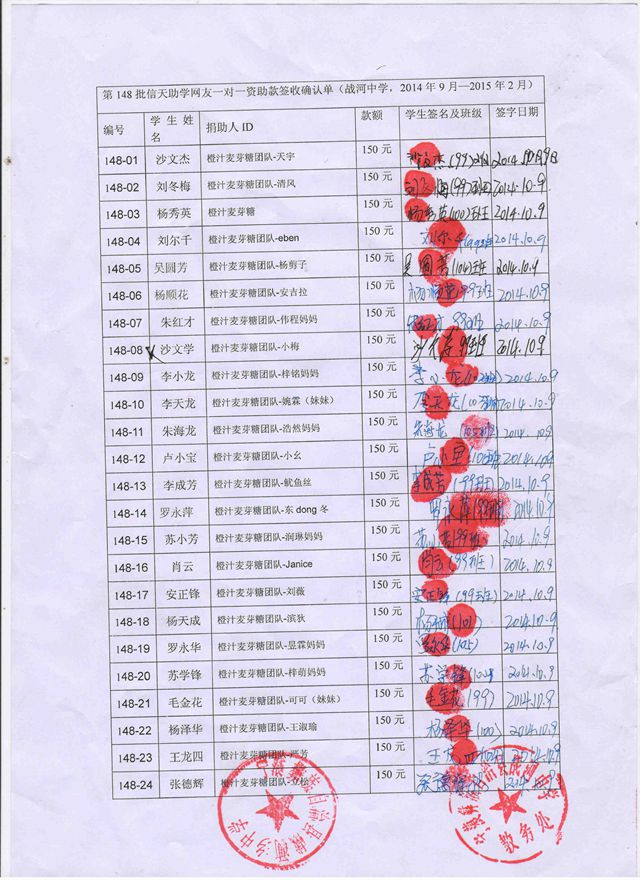 第 148 批信天助学网友一对一资助款签收确认单（战河中学，2014 年 9 月—2015 年 2 月）
编号 学生姓名 捐助人 ID 款额 学生签名及班级 签字日期
148-01 沙文杰 橙汁麦芽糖团队-天宇 150 元
148-02 刘冬梅 橙汁麦芽糖团队-清风 150 元 (99)班 2014.10.9
148-03 杨秀英 橙汁麦芽糖 150 元 杨秀英(100)班 2014.10.9
148-04 刘尔千 橙汁麦芽糖团队-eben 150 元 2014.10.9
148-05 吴圆芳 橙汁麦芽糖团队-杨剪子 150 元 2014.10.9
148-06 杨顺花 橙汁麦芽糖团队-安吉拉 150 元 99班 2014.10.9
148-07 朱红才 橙汁麦芽糖团队-伟程妈妈 150 元 2014.10.9
148-08 沙文学 橙汁麦芽糖团队-小梅 150 元 2014.10.9
148-09 李小龙 橙汁麦芽糖团队-梓铭妈妈 150 元 2014.10.9
148-10 李天龙 橙汁麦芽糖团队-婉霖（妹妹） 150 元 2014.10.9
148-11 朱海龙 橙汁麦芽糖团队-浩然妈妈 150 元 朱海龙 2014.10.9
148-12 卢小宝 橙汁麦芽糖团队-小幺 150 元 2014.10.9
148-13 李成芳 橙汁麦芽糖团队-鱿鱼丝 150 元 (99班) 2014.10.9
148-14 罗永萍 橙汁麦芽糖团队-东 dong 冬 150 元 2014.10.9
148-15 苏小芳 橙汁麦芽糖团队-润琳妈妈 150 元 2014.10.9
148-16 肖云 橙汁麦芽糖团队-Janice 150 元 肖云(99班) 2014.10.9
148-17 安正锋 橙汁麦芽糖团队-刘薇 150 元 安正锋(99班) 2014.10.9
148-18 杨天成 橙汁麦芽糖团队-滨狄 150 元 (101) 2014.10.9
148-19 罗永华 橙汁麦芽糖团队-昱霖妈妈 150 元 (105) 2014.10.9
148-20 苏学锋 橙汁麦芽糖团队-梓萌妈妈 150 元 苏学锋 2014.10.9
148-21 毛金花 橙汁麦芽糖团队-可可（妹妹） 150 元 毛金花(99) 2014.10.9
148-22 杨泽华 橙汁麦芽糖团队-王淑瑜 150 元 杨泽华(100) 2014.10.9
148-23 王龙四 橙汁麦芽糖团队-严芳 150 元 2014.10.9
148-24 张德辉 橙汁麦芽糖团队-立松 150 元
教务处